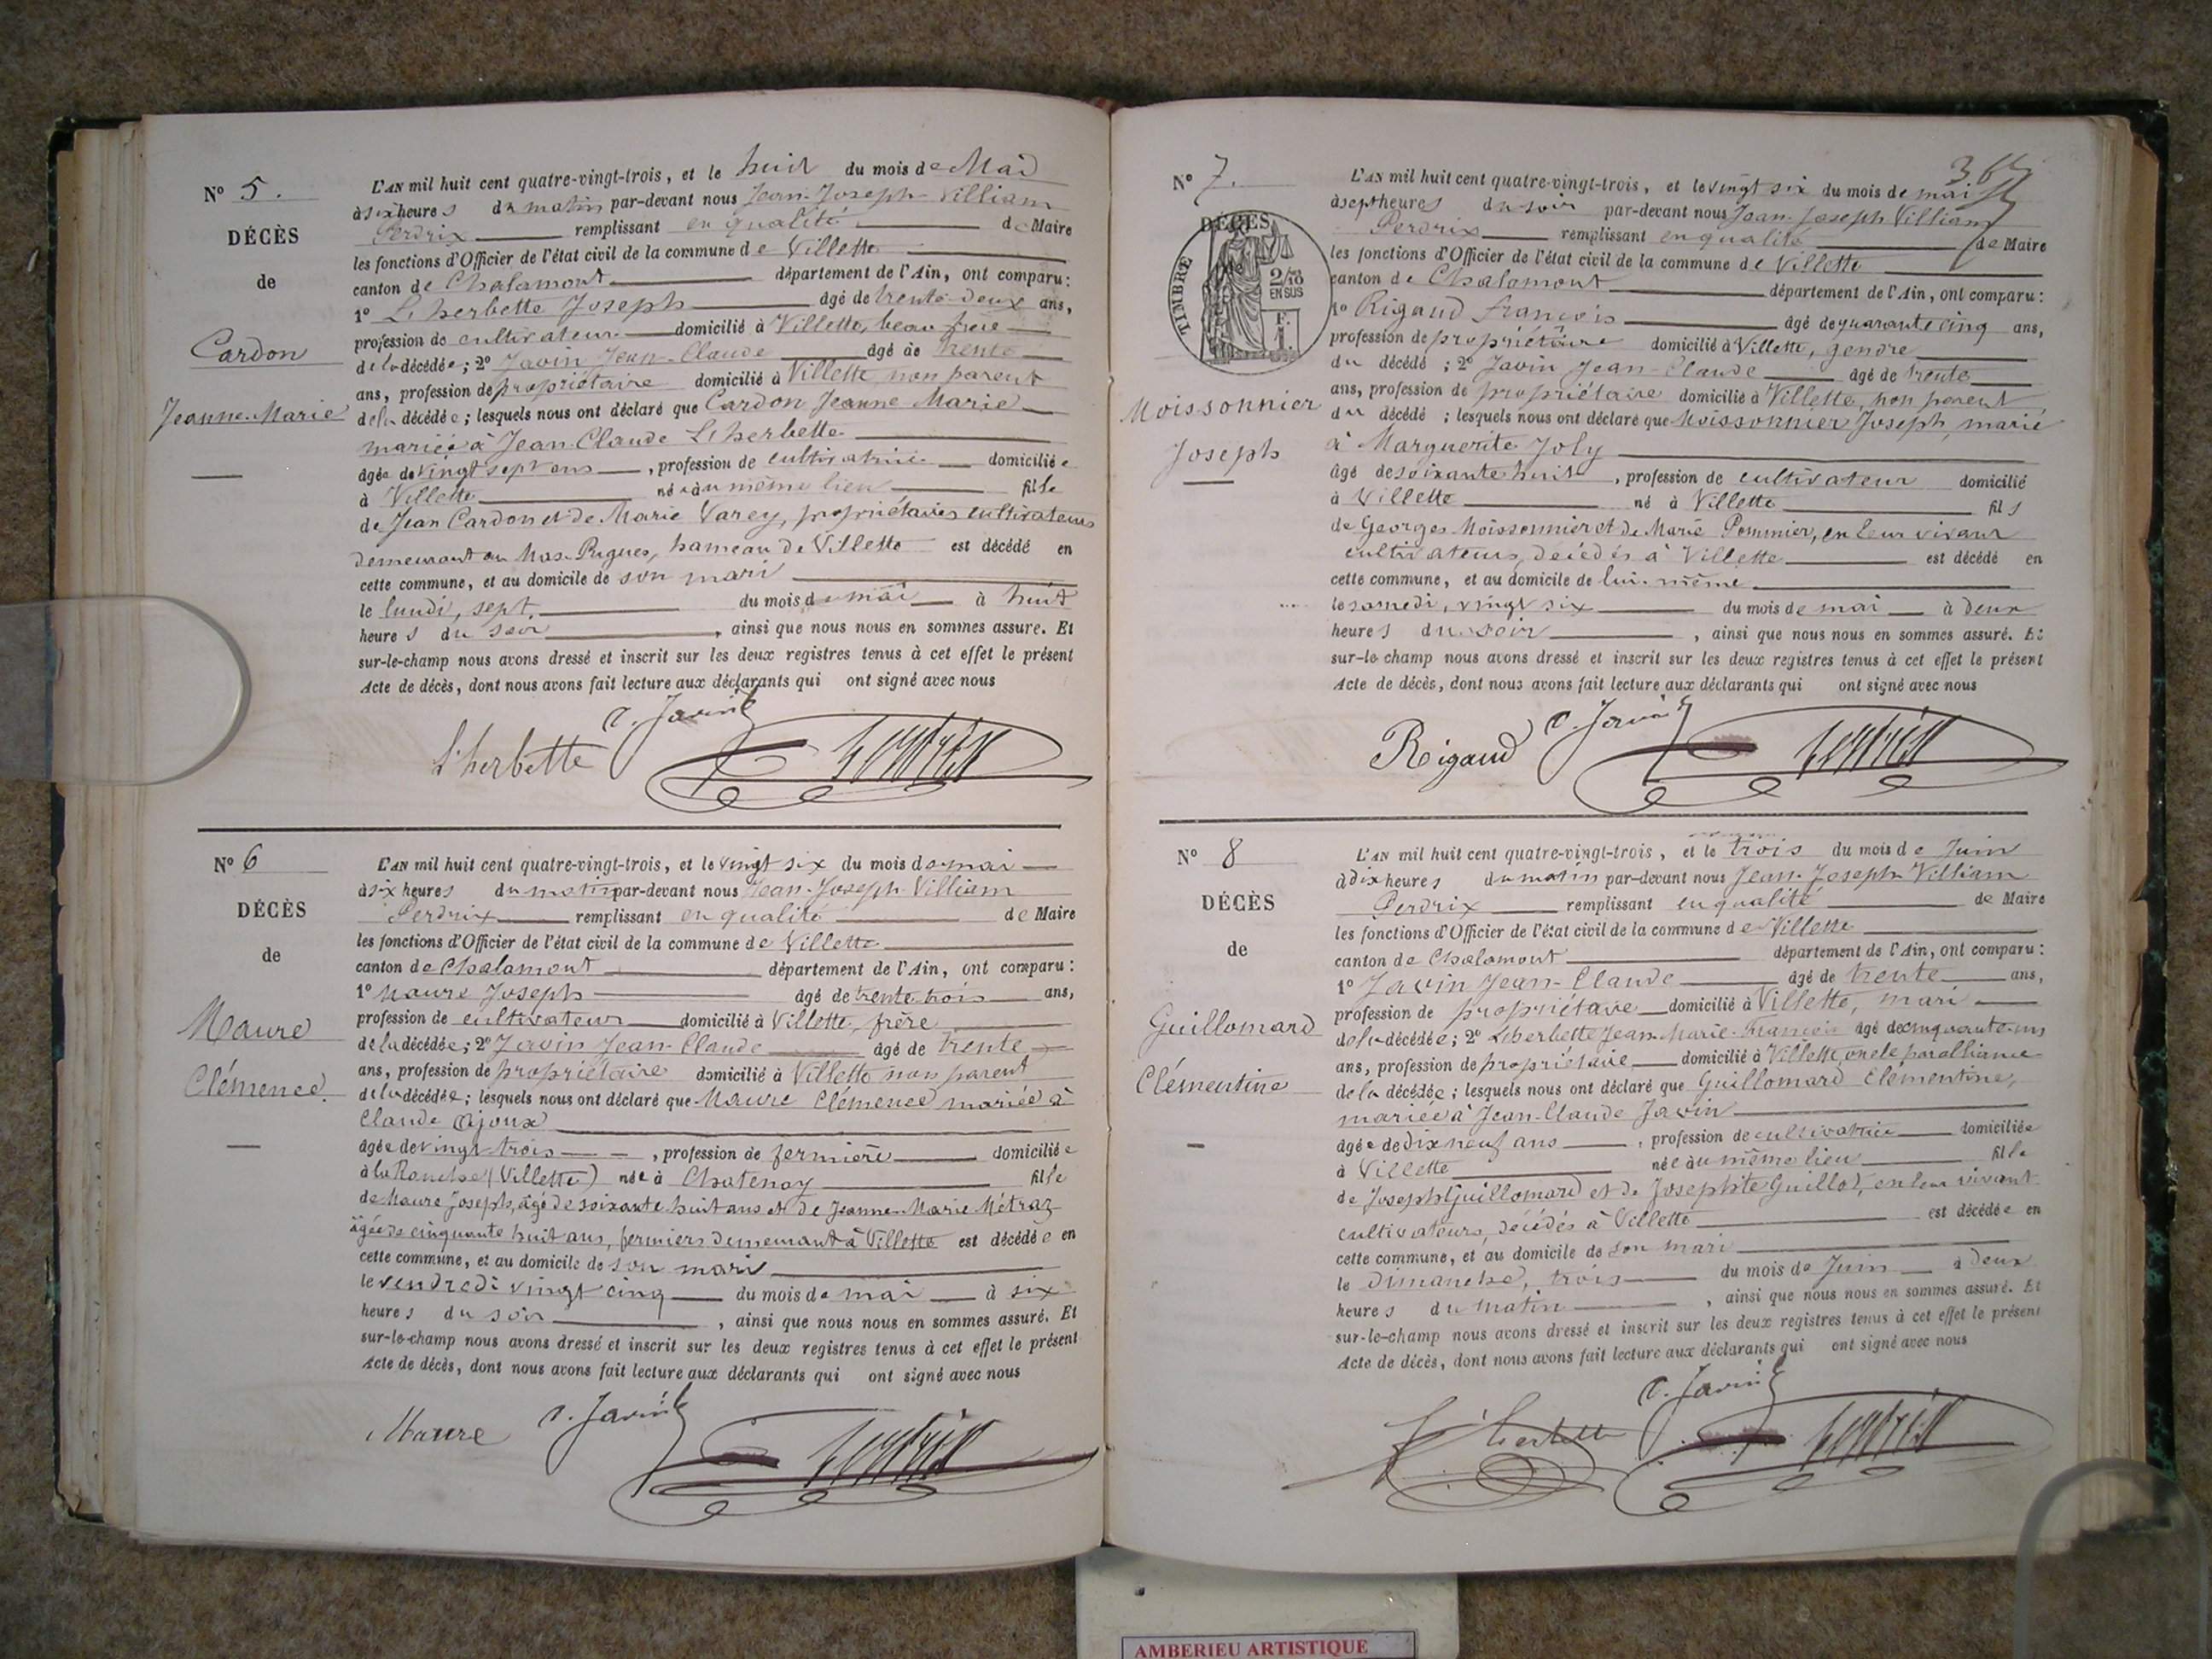 N° 5.
DÉCÈS
de
Cardon
Jeanne-Marie
L'AN mil huit cent quatre-vingt-trois, et le huit du mois de Mai
à six heures du matin par-devant nous Jean-Joseph-Villiam
Perdrix remplissant en qualité de Maire
les fonctions d'Officier de l'état civil de la commune de Villette
canton de Chalamont département de l'Ain, ont comparu:
1° Lherbette Joseph âgé de trente-deux ans,
profession de cultivateur domicilié à Villette, beau frère
de la décédée; 2° Javin Jean-Claude âgé de trente
ans, profession de propriétaire domicilié à Villette, non parent
de la décédée; lesquels nous ont déclaré que Cardon Jeanne-Marie
mariée à Jean-Claude Lherbette
âgée de vingt sept ans, profession de cultivatrice domiciliée
à Villette née au même lieu fille
de Jean Cardon et de Marie Varey, propriétaires cultivateurs
demeurant au Mas-Rigues, hameau de Villette est décédé en
cette commune, et au domicile de son mari
le lundi, sept du mois de mai à huit
heures du soir, ainsi que nous nous en sommes assuré. Et
sur-le-champ nous avons dressé et inscrit sur les deux registres tenus à cet effet le présent
Acte de décès, dont nous avons fait lecture aux déclarants qui ont signé avec nous
L'herbette C. Javin Perdrix
N° 6
DÉCÈS
de
Maure
Clémence.
L'AN mil huit cent quatre-vingt-trois, et le vingt six du mois de mai
à six heures du matin par-devant nous Jean-Joseph-Villiam
Perdrix remplissant en qualité de Maire
les fonctions d'Officier de l'état civil de la commune de Villette
canton de Chalamont département de l'Ain, ont comparu:
1° Maure Joseph âgé de trente trois ans,
profession de cultivateur domicilié à Villette, frère
de la décédée; 2° Javin Jean-Claude âgé de trente
ans, profession de propriétaire domicilié à Villette non parent
de la décédée; lesquels nous ont déclaré que Maure Clémence mariée à
Claude Ajoux
âgée de vingt-trois, profession de fermière domiciliée
à la Ranche (Villette) née à Chatenay fille
de Maure Joseph, âgé de soixante huit ans et de Jeanne-Marie Métraz
âgée de cinquante huit ans, fermiers demeurant à Villette est décédée en
cette commune, et au domicile de son mari
le vendredi vingt cinq du mois de mai à six
heures du soir, ainsi que nous nous en sommes assuré. Et
sur-le-champ nous avons dressé et inscrit sur les deux registres tenus à cet effet le présent
Acte de décès, dont nous avons fait lecture aux déclarants qui ont signé avec nous
Maure C. Javin Perdrix
N° 7.
DÉCÈS
TIMBRE
2/10
EN SUS
F.
1
Moissonnier
Joseph
L'AN mil huit cent quatre-vingt-trois, et le vingt six du mois de mai
à sept heures du soir par-devant nous Jean-Joseph Villiam
Perdrix remplissant en qualité de Maire
les fonctions d'Officier de l'état civil de la commune de Villette
canton de Chalamont département de l'Ain, ont comparu:
1° Rigaud François âgé de quarante cinq ans,
profession de propriétaire domicilié à Villette, gendre
du décédé; 2° Javin Jean-Claude âgé de trente
ans, profession de propriétaire domicilié à Villette, non parent
du décédé; lesquels nous ont déclaré que Moissonnier Joseph, marié
à Marguerite Joly
âgé de soixante huit, profession de cultivateur domicilié
à Villette né à Villette fils
de Georges Moissonnier et de Marie Pommier, en leur vivant
cultivateurs, décédés à Villette est décédé en
cette commune, et au domicile de lui-même
le samedi, vingt six du mois de mai à deux
heures du soir, ainsi que nous nous en sommes assuré. Et
sur-le-champ nous avons dressé et inscrit sur les deux registres tenus à cet effet le présent
Acte de décès, dont nous avons fait lecture aux déclarants qui ont signé avec nous
Rigaud C. Javin Perdrix
N° 8
DÉCÈS
de
Guillomard
Clémentine
L'AN mil huit cent quatre-vingt-trois, et le trois du mois de Juin
à dix heures du matin par-devant nous Jean-Joseph Villiam
Perdrix remplissant en qualité de Maire
les fonctions d'Officier de l'état civil de la commune de Villette
canton de Chalamont département de l'Ain, ont comparu:
1° Javin Jean-Claude âgé de trente ans,
profession de propriétaire domicilié à Villette, mari
de la décédée; 2° Lherbette Jean-Marie-François âgé de cinquante-un
ans, profession de propriétaire domicilié à Villette, oncle par alliance
de la décédée; lesquels nous ont déclaré que Guillomard Clémentine,
mariée à Jean-Claude Javin
âgée de dix neuf ans, profession de cultivatrice domiciliée
à Villette née au même lieu fille
de Joseph Guillomard et de Josephte Guillot, en leur vivant
cultivateurs, décédés à Villette est décédée en
cette commune, et au domicile de son mari
le Dimanche, trois du mois de Juin à deux
heures du matin, ainsi que nous nous en sommes assuré. Et
sur-le-champ nous avons dressé et inscrit sur les deux registres tenus à cet effet le présent
Acte de décès, dont nous avons fait lecture aux déclarants qui ont signé avec nous
L'herbette C. Javin Perdrix
AMBERIEU ARTISTIQUE